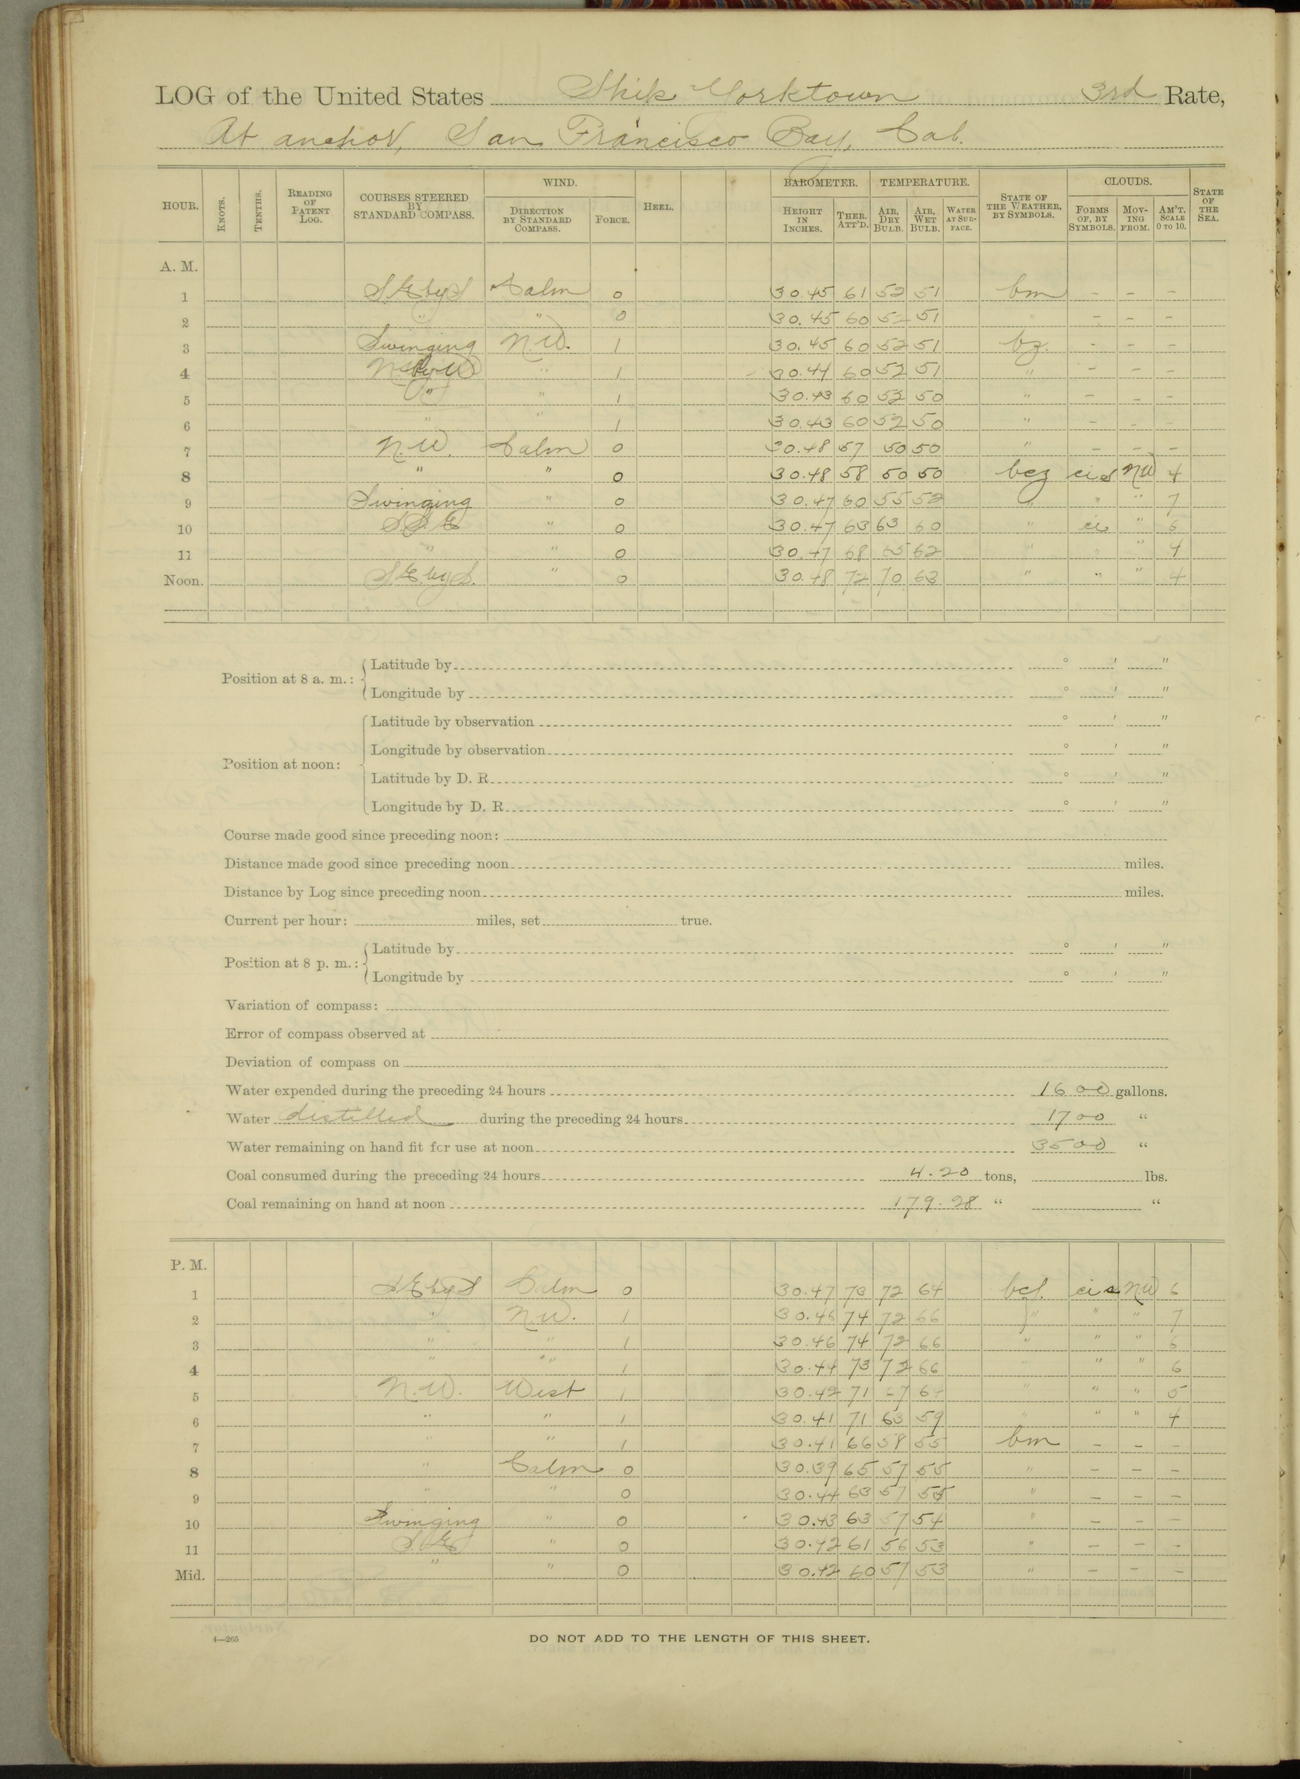 LOG of the United States Ship Yorktown 3rd Rate,
At anchor, San Francisco Bay, Cal.
HOUR. KNOTS. TENTHS. READING OF PATENT LOG. COURSES STEERED BY STANDARD COMPASS. WIND. DIRECTION BY STANDARD COMPASS. FORCE. HEEL. BAROMETER. HEIGHT IN INCHES. THER. ATT'D. TEMPERATURE. AIR, DRY BULB. AIR, WET BULB. WATER AT SURFACE. STATE OF THE WEATHER, BY SYMBOLS. CLOUDS. FORMS OF, BY SYMBOLS. MOVING FROM. AM'T. SCALE 0 TO 10. STATE OF THE SEA.
A. M.
1 SE by S Calm 0 30.45 61 52 51 bm – – –
2 " " 0 30.45 60 52 51 " – – –
3 Swinging N.W. 1 30.45 60 52 51 bz. – – –
4 " 1 30.44 60 52 51 " – – –
5 " " 1 30.43 60 52 50 " – – –
6 " " 1 30.43 60 52 50 " – – –
7 N.W. Calm 0 30.48 57 50 50 " – – –
8 " " 0 30.48 58 50 50 bcz ci s NW 4
9 Swinging " 0 30.47 60 55 52 " " " 7
10 S.S.E " 0 30.47 63 63 60 " ci " 6
11 " " 0 30.47 68 65 62 " " " 4
Noon. SE by S. " 0 30.48 72 70 63 " " " 4
Position at 8 a. m.: Latitude by ° ' "
Longitude by ° ' "
Position at noon: Latitude by observation ° ' "
Longitude by observation ° ' "
Latitude by D. R. ° ' "
Longitude by D. R. ° ' "
Course made good since preceding noon:
Distance made good since preceding noon miles.
Distance by Log since preceding noon miles.
Current per hour: miles, set true.
Position at 8 p. m.: Latitude by ° ' "
Longitude by ° ' "
Variation of compass:
Error of compass observed at
Deviation of compass on
Water expended during the preceding 24 hours 1600 gallons.
Water distilled during the preceding 24 hours 1700 "
Water remaining on hand fit for use at noon 3500 "
Coal consumed during the preceding 24 hours 4.20 tons, lbs.
Coal remaining on hand at noon 179.28 " "
P. M.
1 SE by S Calm 0 30.47 73 72 64 bcf. ci s NW 6
2 " N.W. 1 30.46 74 72 66 " " " 7
3 " " 1 30.46 74 72 66 " " " 6
4 " " 1 30.44 73 72 66 " " " 6
5 N.W. West 1 30.42 71 67 " " " 5
6 " " 1 30.41 71 63 59 " " " 4
7 " " 1 30.41 66 58 55 bm – – –
8 " Calm 0 30.39 65 57 55 " – – –
9 " " 0 30.44 63 57 55 " – – –
10 Swinging " 0 30.43 63 57 54 " – – –
11 S.E " 0 30.42 61 56 53 " – – –
Mid. " " 0 30.42 60 57 53 " – – –
4—265
DO NOT ADD TO THE LENGTH OF THIS SHEET.